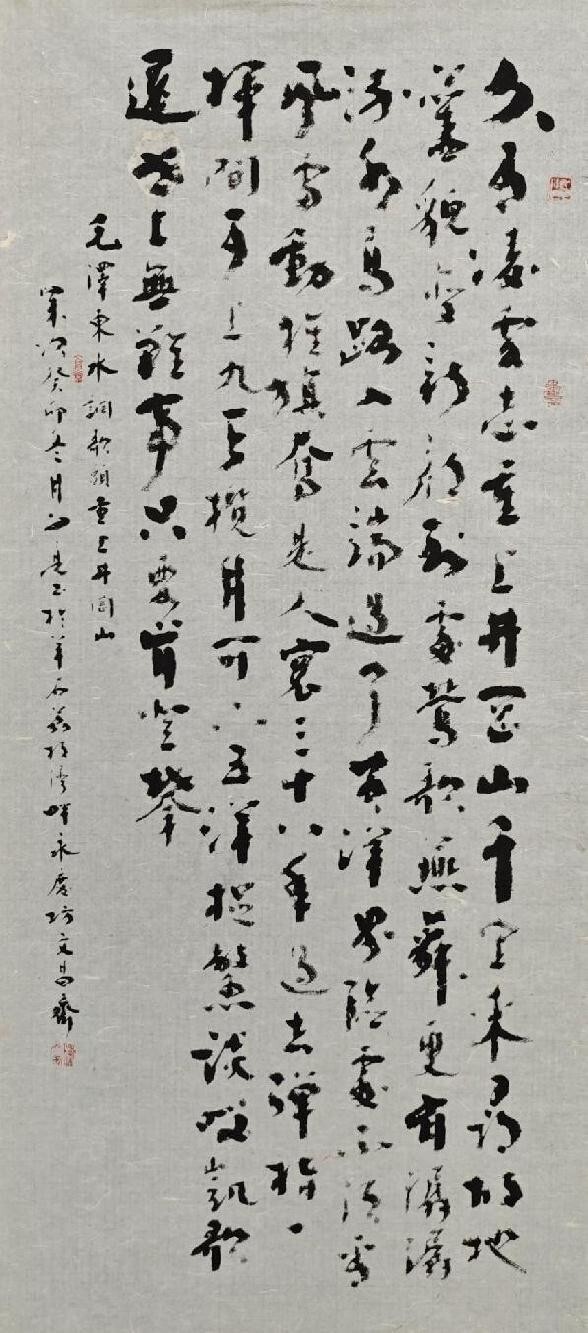 久有凌雲志重上井岡山千里來尋故地
舊貌變新顏到處鶯歌燕舞更有潺潺
流水高路入雲端過了黃洋界險處不須看
風雷動旌旗奮是人寰三十八年過去彈指一
揮間可上九天攬月可下五洋捉鱉談笑凱歌
還世上無難事只要肯登攀
毛澤東水調歌頭重上井岡山
歲次癸卯冬月於羊石荔永慶坊文昌齋